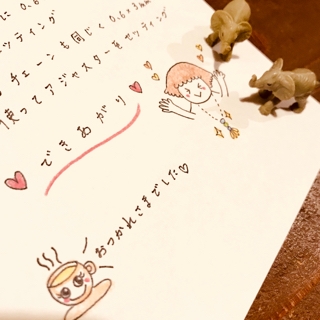 に 0.6
セッティング
チェーンも同じく 0.6×3mm
使ってアジャスターをセッティング
できあがり
おつかれさまでした♡